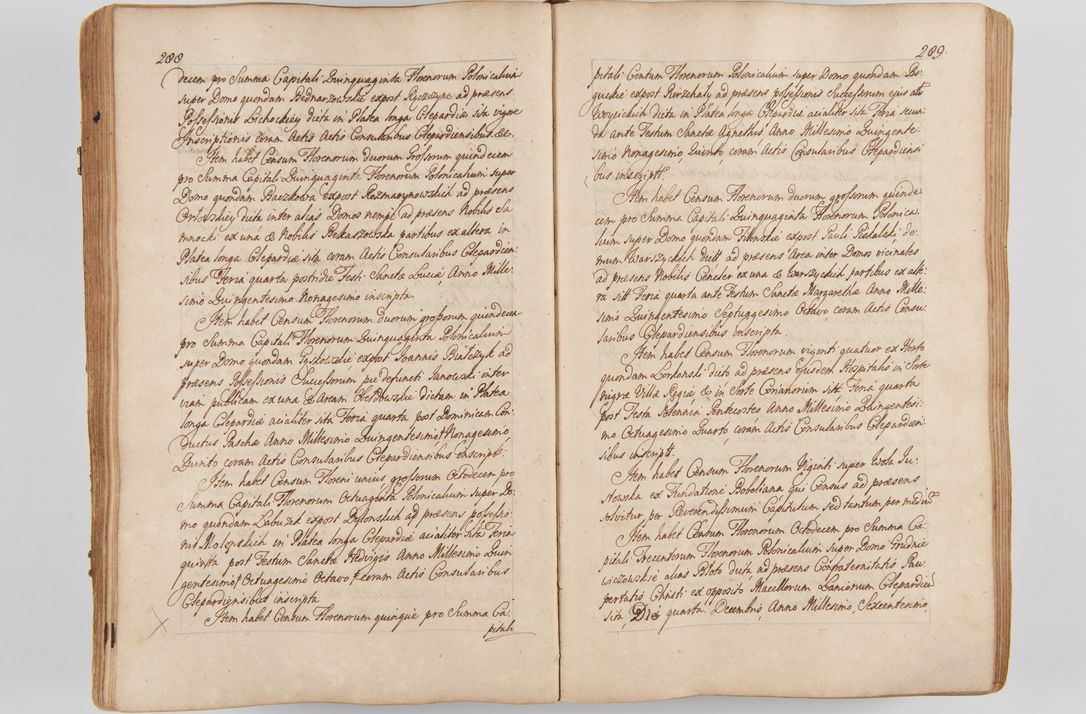 288
decem pro Summa Capitali Quinquaginta Florenorum Polonicalium
super Domo quondam Bednarzowskie expost Ryczczyc ad præsens
Possessionis Lichockiey dicta in Platea longa Clepardiæ sita vigore
Inscriptionis coram Actis Actis Consularibus Clepardiensibus &c.
Item habet Censum Florenorum duorum Grossorum quindecem
pro Summa Capitali Quinquaginta Florenorum Polonicalium super
Domo quondam Baczkowa expost Rozmarynowskich ad præsens
Ortowskiey dicta inter alias Domos nempe ad præsens Nobilis Sla
mnocki ex una & Nobilis Bekaszowska partibus ex altera in
Platea longa Clepardiæ sita coram Actis Consularibus Clepardien:
sibus Feria quarta postridie Festi Sanctæ Luciæ Anno Mille:
simo Quingentesimo Nonagesimo inscripta.
Item habet Censum Florenorum duorum grossorum quindecem
pro Summa Capitali Florenorum Quinquaginta Polonicalium
super Domo quondam Gaskowskie expost Joannis Białczyk ad
præsens Possessionis Successorum pie defuncti Janowski inter
viam publicam ex una & Aream Obełkowskie Dictam in Platea
longa Clepardiæ acialiter sita Feria quarta post Dominicam Con:
ductus Paschæ Anno Millesimo Quingentesimo Nonagesimo
Quinto coram Actis Consularibus Clepardiensibus inscript:
Item habet Censum Floreni unius grossorum Octodecem pro
Summa Capitali Florenorum Octuaginta Polonicalium super Do:
mo quondam Labuzek expost Dylonskich ad præsens possessio:
nis Mosonskich in Platea longa Clepardiæ acialiter sita Feria
quinta post Festum Sanctæ Hedvigis Anno Millesimo Quin
gentesimo Octuagesimo Octavo coram Actis Consularibus
Clepardiensibus inscripta.
Item habet Censum Florenorum quinque pro Summa Ca:
pitali
289
pitali Centum Florenorum Polonicalium super Domo quondam Bo:
guckie expost Pierzchały ad præsens possessionis Successorum ejus alt
Woysickich dicta in Platea longa Clepardiæ acialiter sita Feria secun
da ante Festum Sanctæ Agnethis Anno Millesimo Quingente:
simo Nonagesimo Quinto, coram Actis Consularibus Clepardiensi
bus inscript.
Item habet Censum Florenorum duorum grossorum quinde
cem pro Summa Capitali Quinquaginta Florenorum Polonica
lium super Domo quondam Thonskie expost Pauli Pestalski, do:
mum Warszyckich dict ad præsens Area inter Domos vicinales
ad præsens Nobilis Cencler ex una & Warszyckich partibus ex alte:
ra sit Feria quarta ante Festum Sanctæ Margarethæ Anno Mille:
simo Quingentesimo Septuagesimo Octavo, coram Actis Consu:
laribus Clepardiensibus inscripta.
Item habet Censum Florenorum viginti quatuor ex Horto
quondam Lorkonski dicto ad præsens Ejusdem Hospitalis in Sorte
nigra Villa Regiæ, & in Sorte Coriariorum sit. Feria quarta
post Festa Solennia Pentecostes Anno Millesimo Quingentesi:
mo Octuagesimo Quarto, coram Actis Consularibus Clepardien:
sibus inscript.
Item habet Censum Florenorum Viginti super Wola Ju:
stowska ex Fundatione Boboliana qui Census ad præsens
solvitur, per Reverendissimum Capitulum Sed tantum per medium
Item habet Censum Florenorum Octodecem pro Summa Ca:
pitali Trecentorum Florenorum Polonicalium super Domo Grudnie
wiczowskie alias Błoto dicta ad præsens Confraternitatis Pau
pertatis Christi ex opposito Macellorum Lanionum Clepardien
sita, Die quarta Decembris, Anno Millesimo, Sexcentesimo,